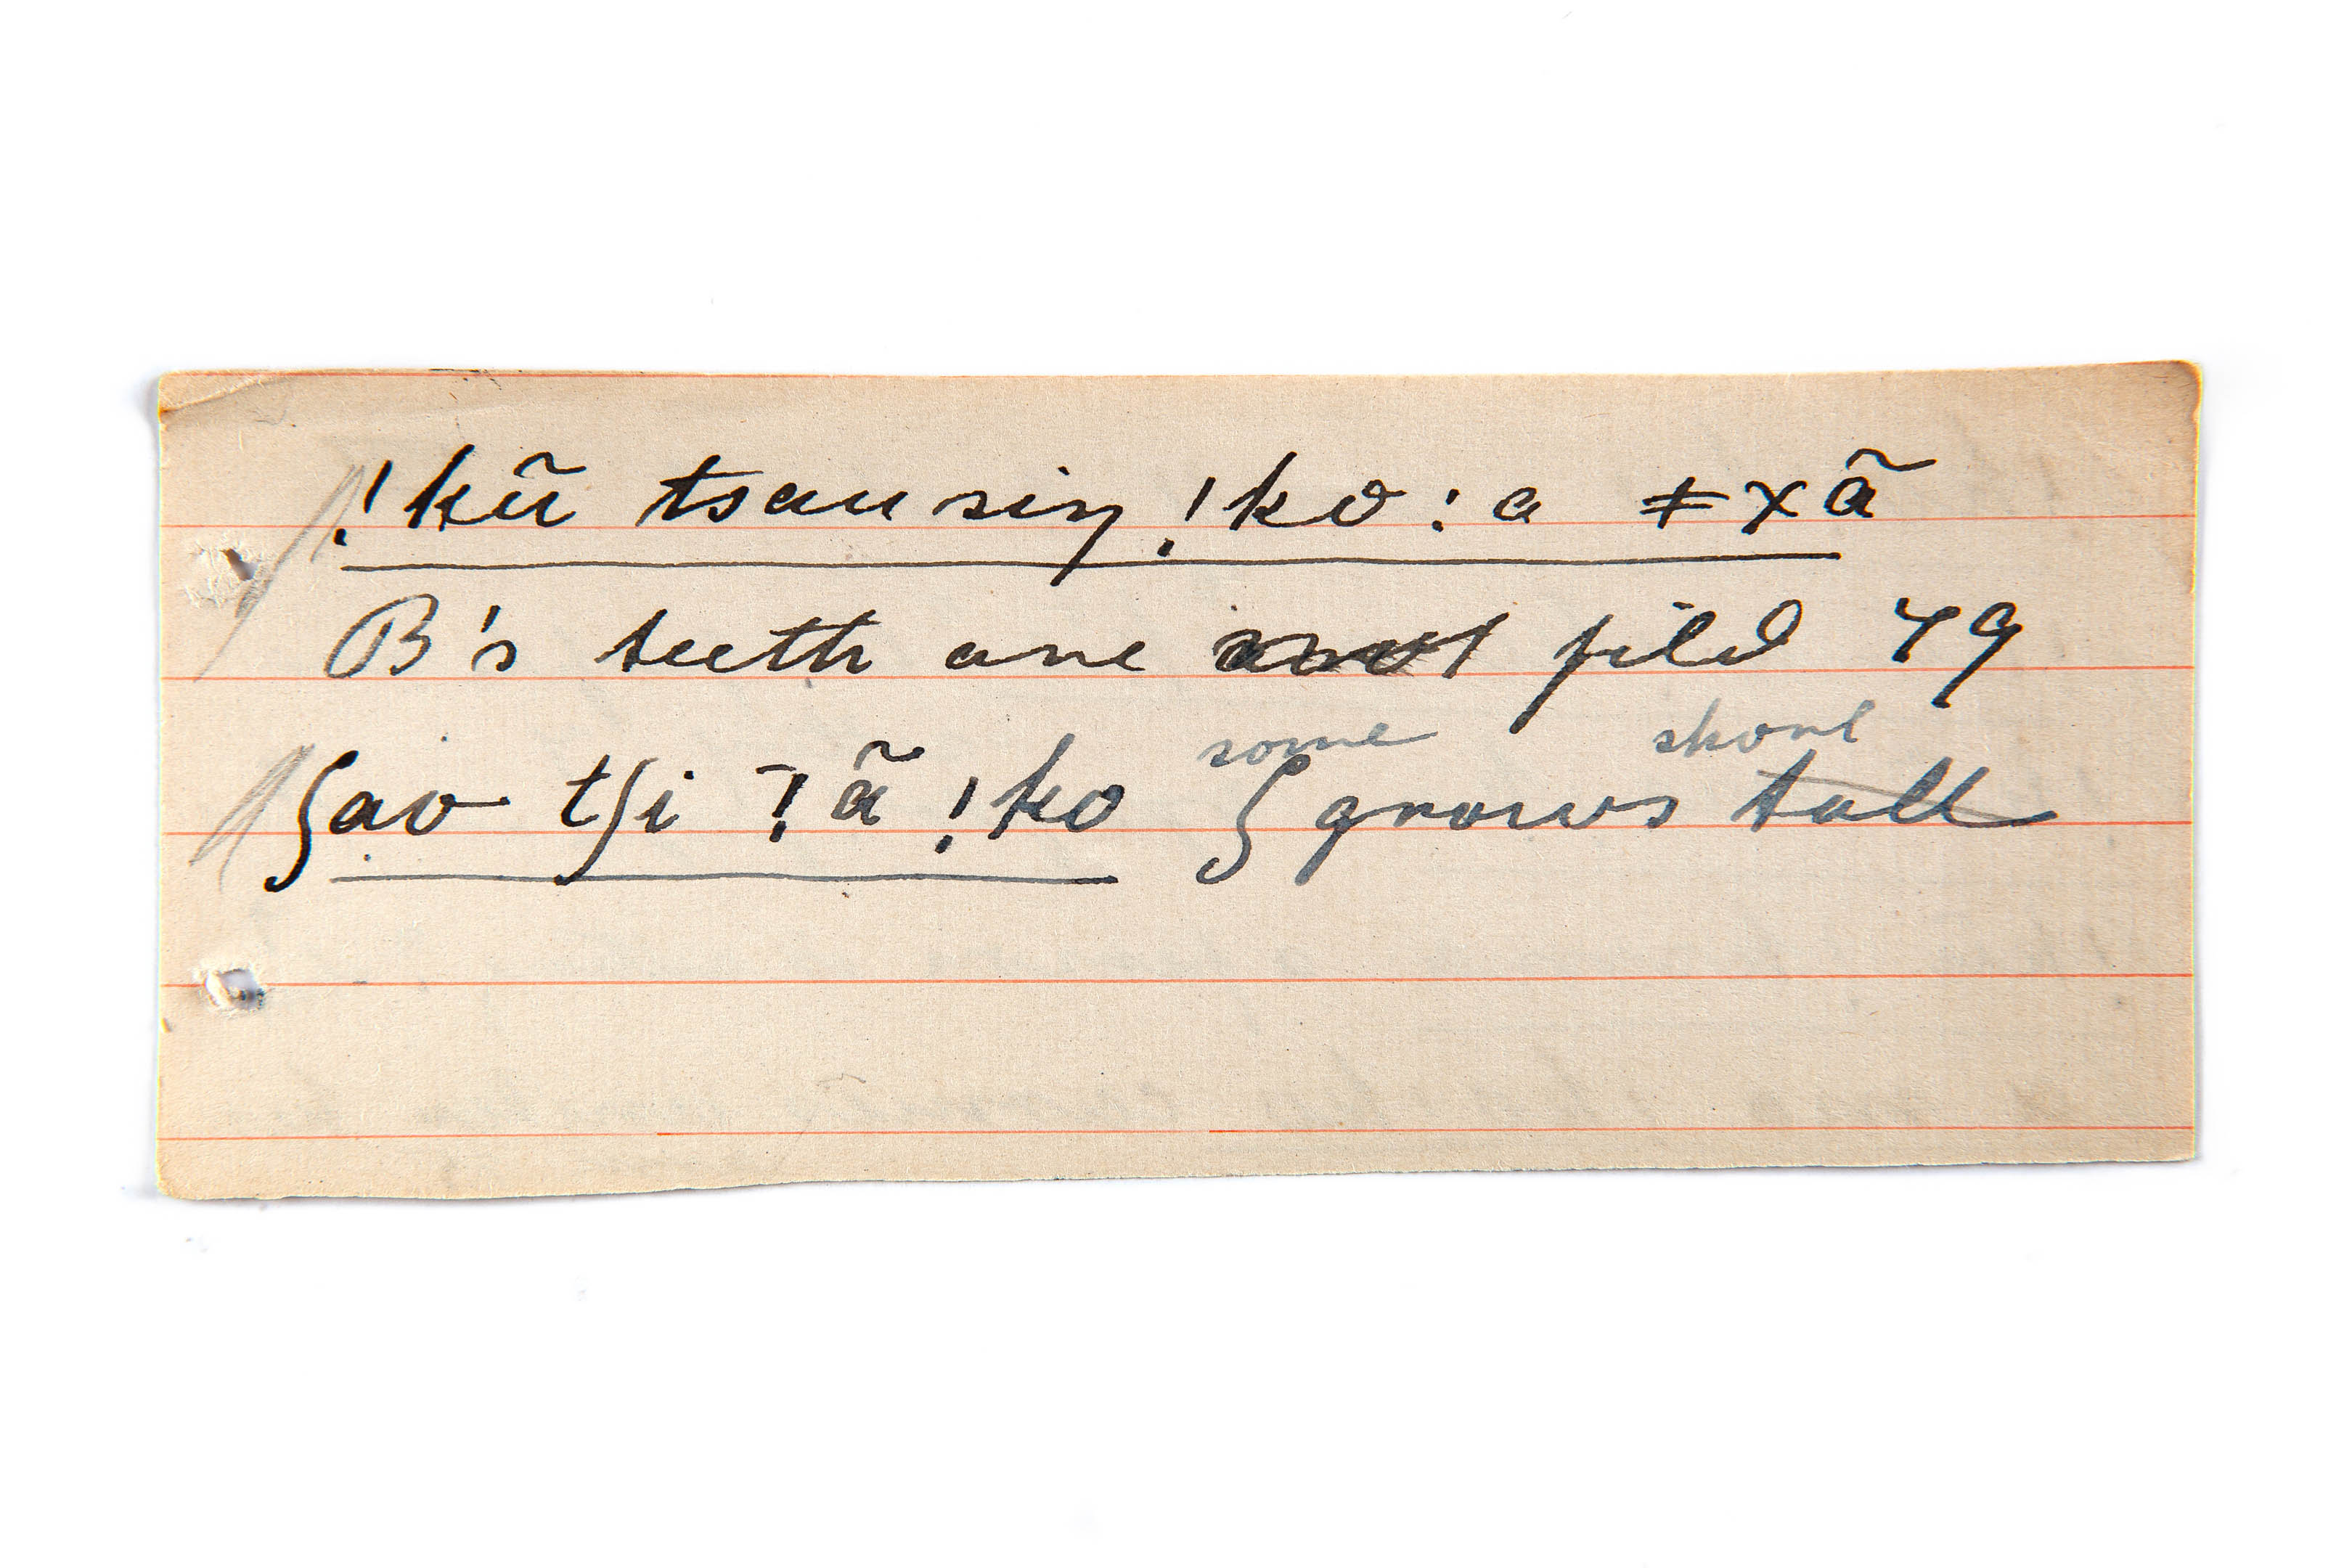 !kũ tsausiŋ !ko:a ǂxã
B's teeth are not fild 79
some short
ʃao tʃi ˉ!ã !ko ʃ grows tall